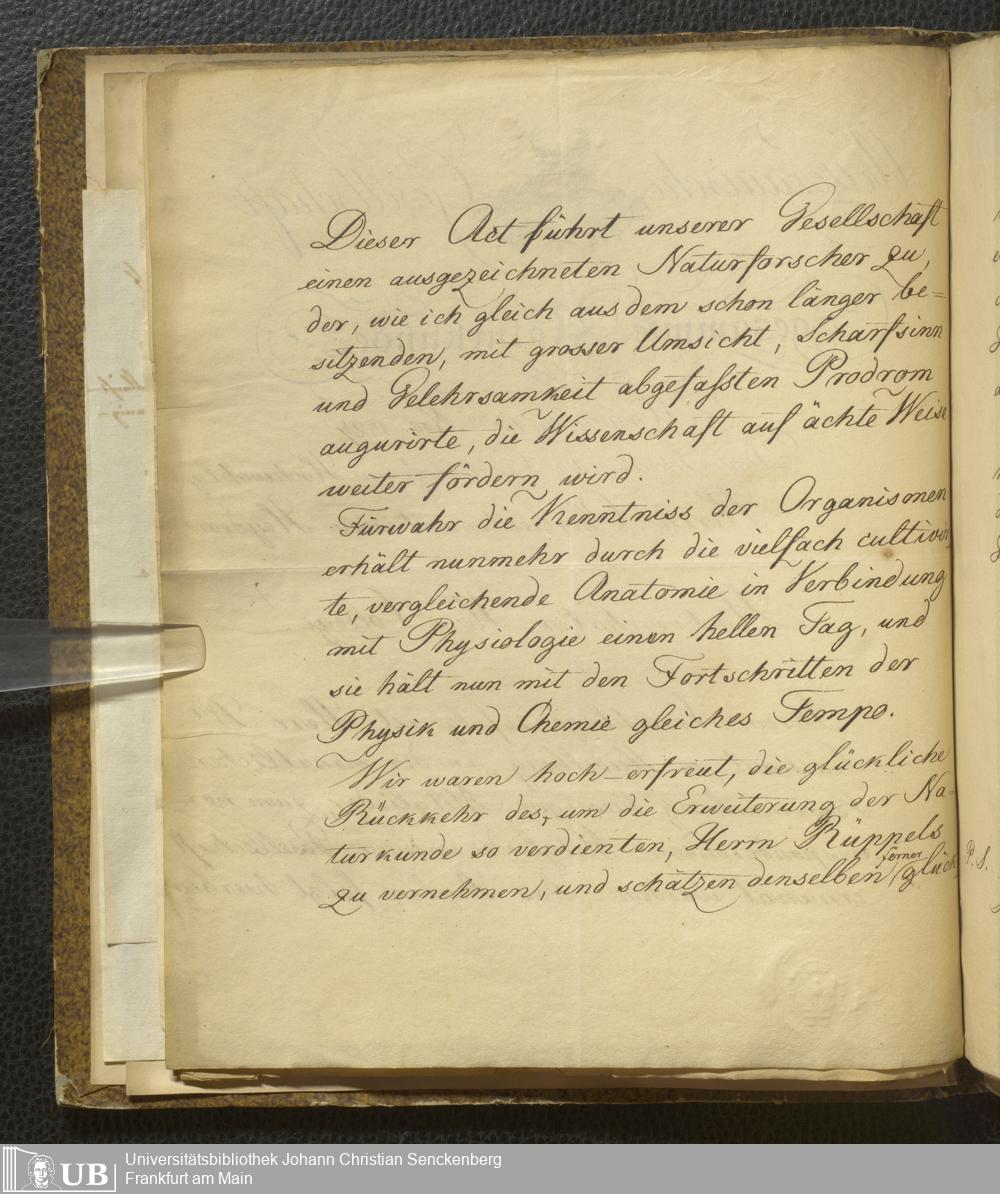 Dieser Act führt unserer Gesellschaft
einen ausgezeichneten Naturforscher zu,
der, wie ich gleich aus dem schon länger be=
sitzenden, mit grosser Umsicht, Scharfsinn
und Gelehrsamkeit abgefaßten Prodrom
augurirte, die Wissenschaft auf ächte Weise
weiter fördern wird.
Fürwahr die Kenntniss der Organismen
erhält nunmehr durch die vielfach cultivir
te, vergleichende Anatomie in Verbindung
mit Physiologie einen hellen Tag, und
sie hält nun mit den Fortschritten der
Physik und Chemie gleiches Tempo.
Wir waren hoch-erfreut, die glückliche
Rückkehr des, um die Erweiterung der Na=
turkunde so verdienten, Herrn Rüppels
zu vernehmen, und schätzen denselben ferner glück
P. S.
UB
Universitätsbibliothek Johann Christian Senckenberg
Frankfurt am Main